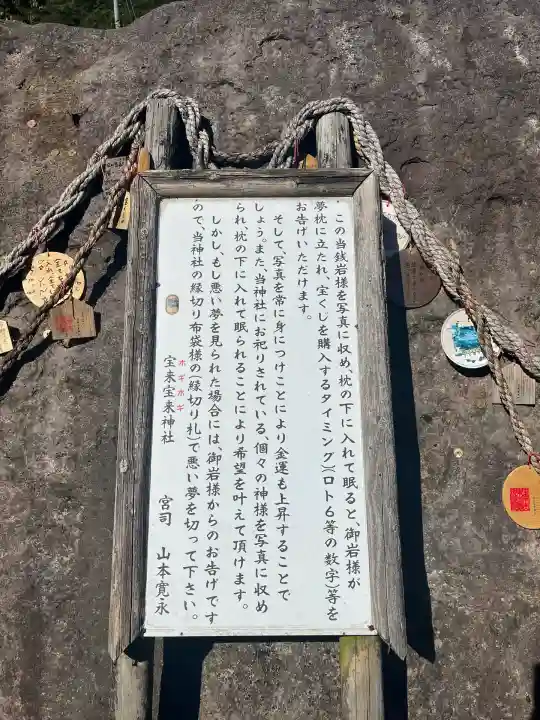 この当銭岩様を写真に収め、枕の下に入れて眠ると、御岩様が
夢枕に立たれ、宝くじを購入するタイミング)(ロト6等の数字)等を
お告げいただけます。
そして、写真を常に身につけことにより金運も上昇することで
しょう。また、当神社にお祀りされている、個々の神様を写真に収め
られ、枕の下に入れて眠られることにより希望を叶えて頂けます。
しかし、もし悪い夢を見られた場合には、御岩様からのお告げです
ので、当神社の縁切り布袋様の(縁切り札)で悪い夢を切って下さい。
ホギホギ
宝来宝来神社 宮司 山本寛永